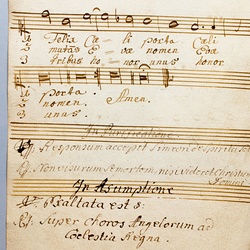 Felix Cœ - li porta Cœli
2 mutas E - væ nomen Evæ
3 tribus ho - nor unus honor
porta.
2 nomen. Amen.
3 unus.
In Purificatione
Responsum accepit Simeon â Spiritu
Non visurum se mortem nisi videret Christum
Domini
In Assumptione
℣. Exaltata est &:
℟. Super Choros Angelorum ad
Cœlestia Regna.